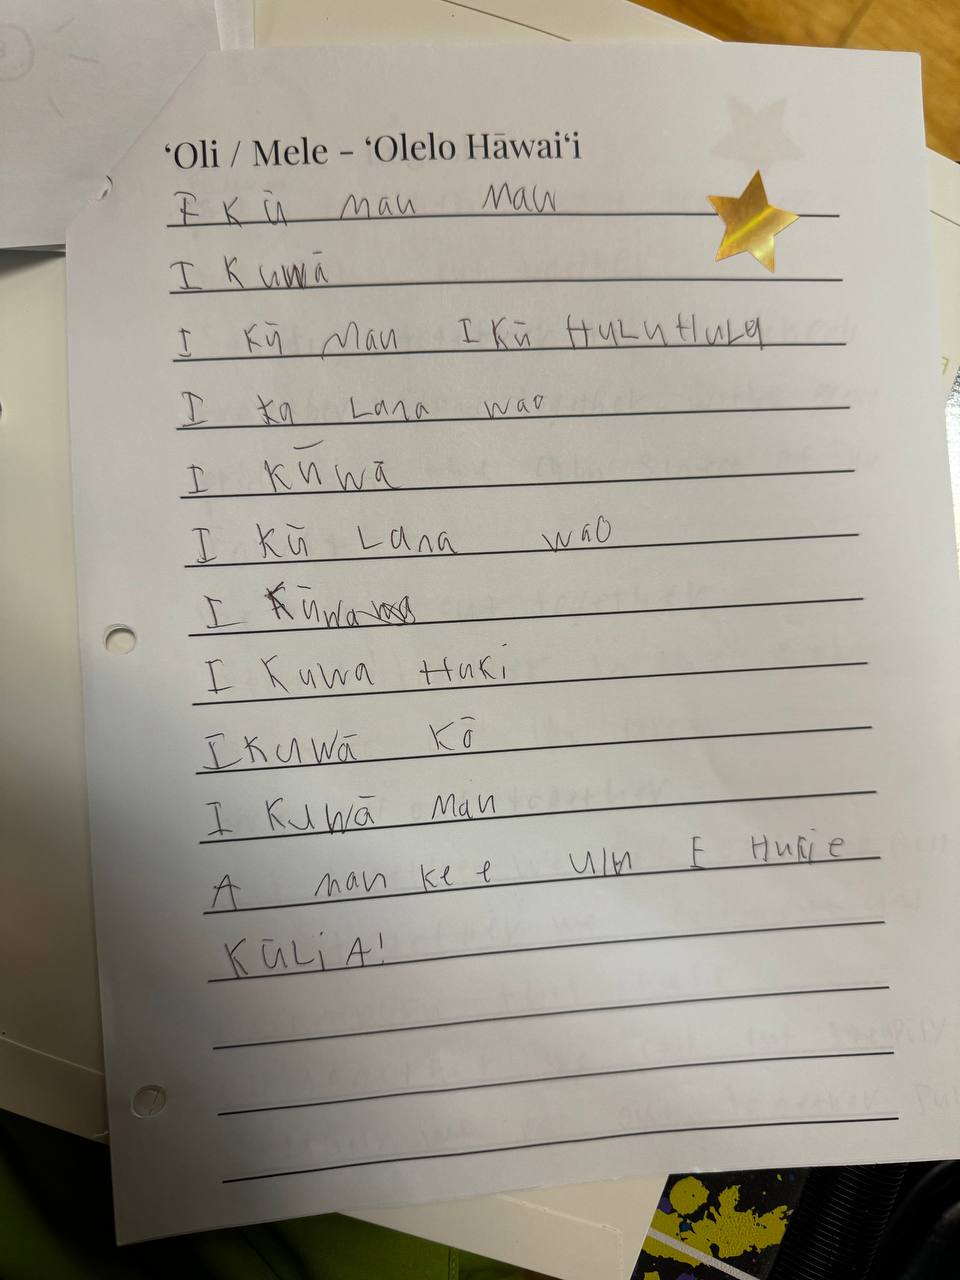 ‘Oli / Mele – ‘Olelo Hāwai‘i
I Kū mau mau
I Kuwā
I Kū mau I Kū HuLuHuLu
I ka Lana wao
I Kūwā
I Kū Lana wao
I Kūwa
I Kuwa Huki
I Kuwā Kō
I Kuwā mau
A mau ke e ulu E Huki e
KūLiA!